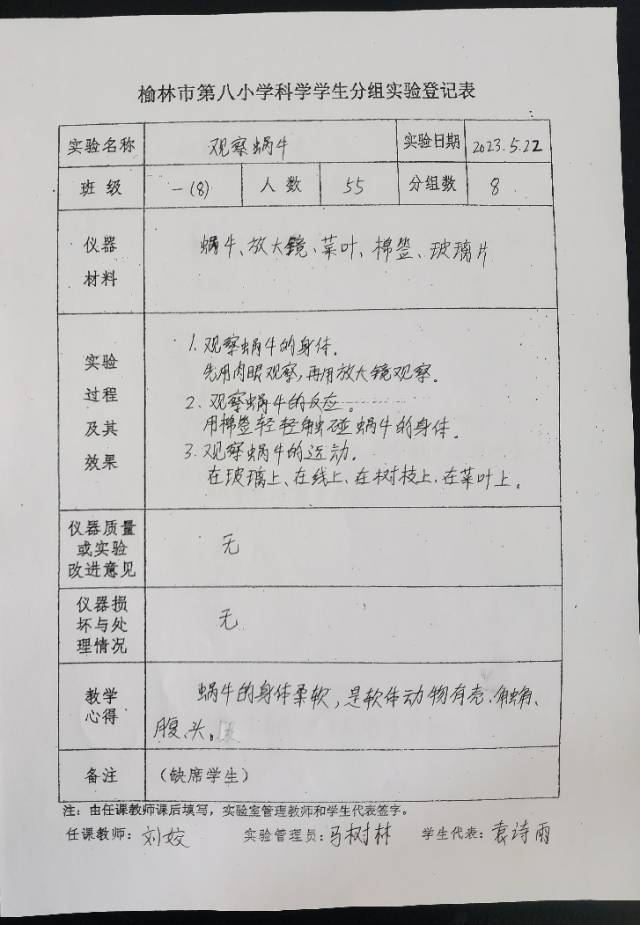 榆林市第八小学科学学生分组实验登记表
实验名称 观察蜗牛 实验日期 2023.5.22
班级 一(8) 人数 55 分组数 8
仪器材料 蜗牛、放大镜、菜叶、棉签、玻璃片
实验过程及其效果
1. 观察蜗牛的身体.
先用肉眼观察,再用放大镜观察.
2、观察蜗牛的反应。
用棉签轻轻触碰蜗牛的身体.
3. 观察蜗牛的运动.
在玻璃上、在线上、在树枝上、在菜叶上。
仪器质量或实验改进意见 无
仪器损坏与处理情况 无
教学心得 蜗牛的身体柔软,是软体动物有壳、触角、
腹、头。
备注 (缺席学生)
注:由任课教师课后填写,实验室管理教师和学生代表签字。
任课教师:刘姣 实验管理员:马树林 学生代表:袁诗雨